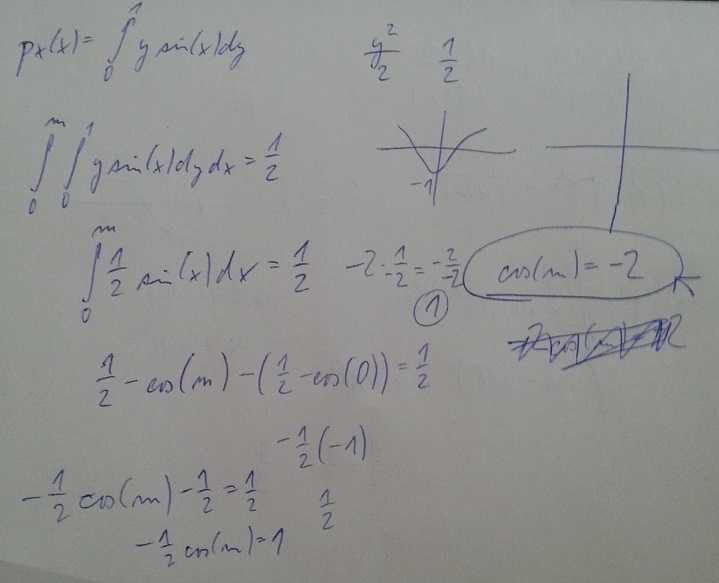 px(x) = ∫₀¹ y sin(x) dy
y²/2 1/2
∫₀ᵐ ∫₀¹ y sin(x) dy dx = 1/2
-1
∫₀ᵐ 1/2 sin(x) dx = 1/2
-2 · 1/-2 = -2/-2
1
cos(m) = -2
1/2 - cos(m) - (1/2 - cos(0)) = 1/2
-1/2 (-1)
1/2
-1/2 cos(m) - 1/2 = 1/2
-1/2 cos(m) = 1